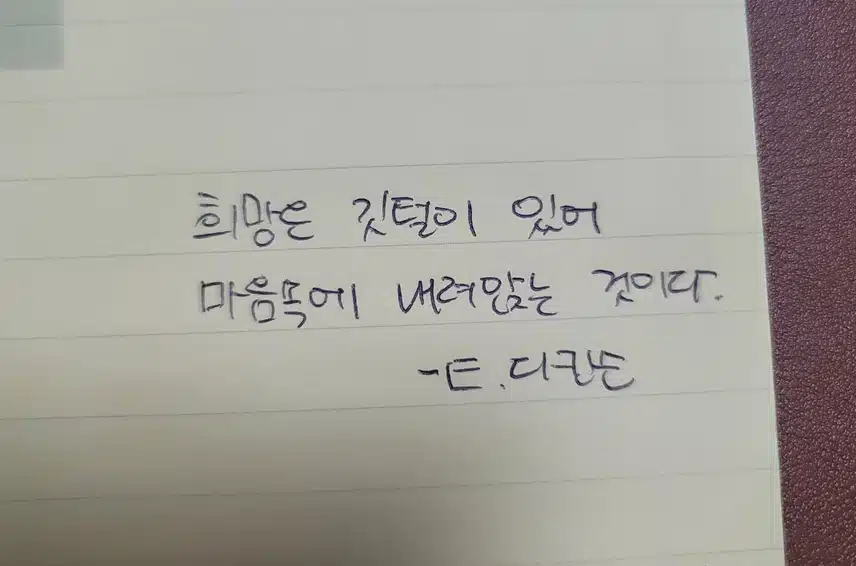 희망은 깃털이 있어
마음목에 내려앉는 것이다.
-E. 디킨슨